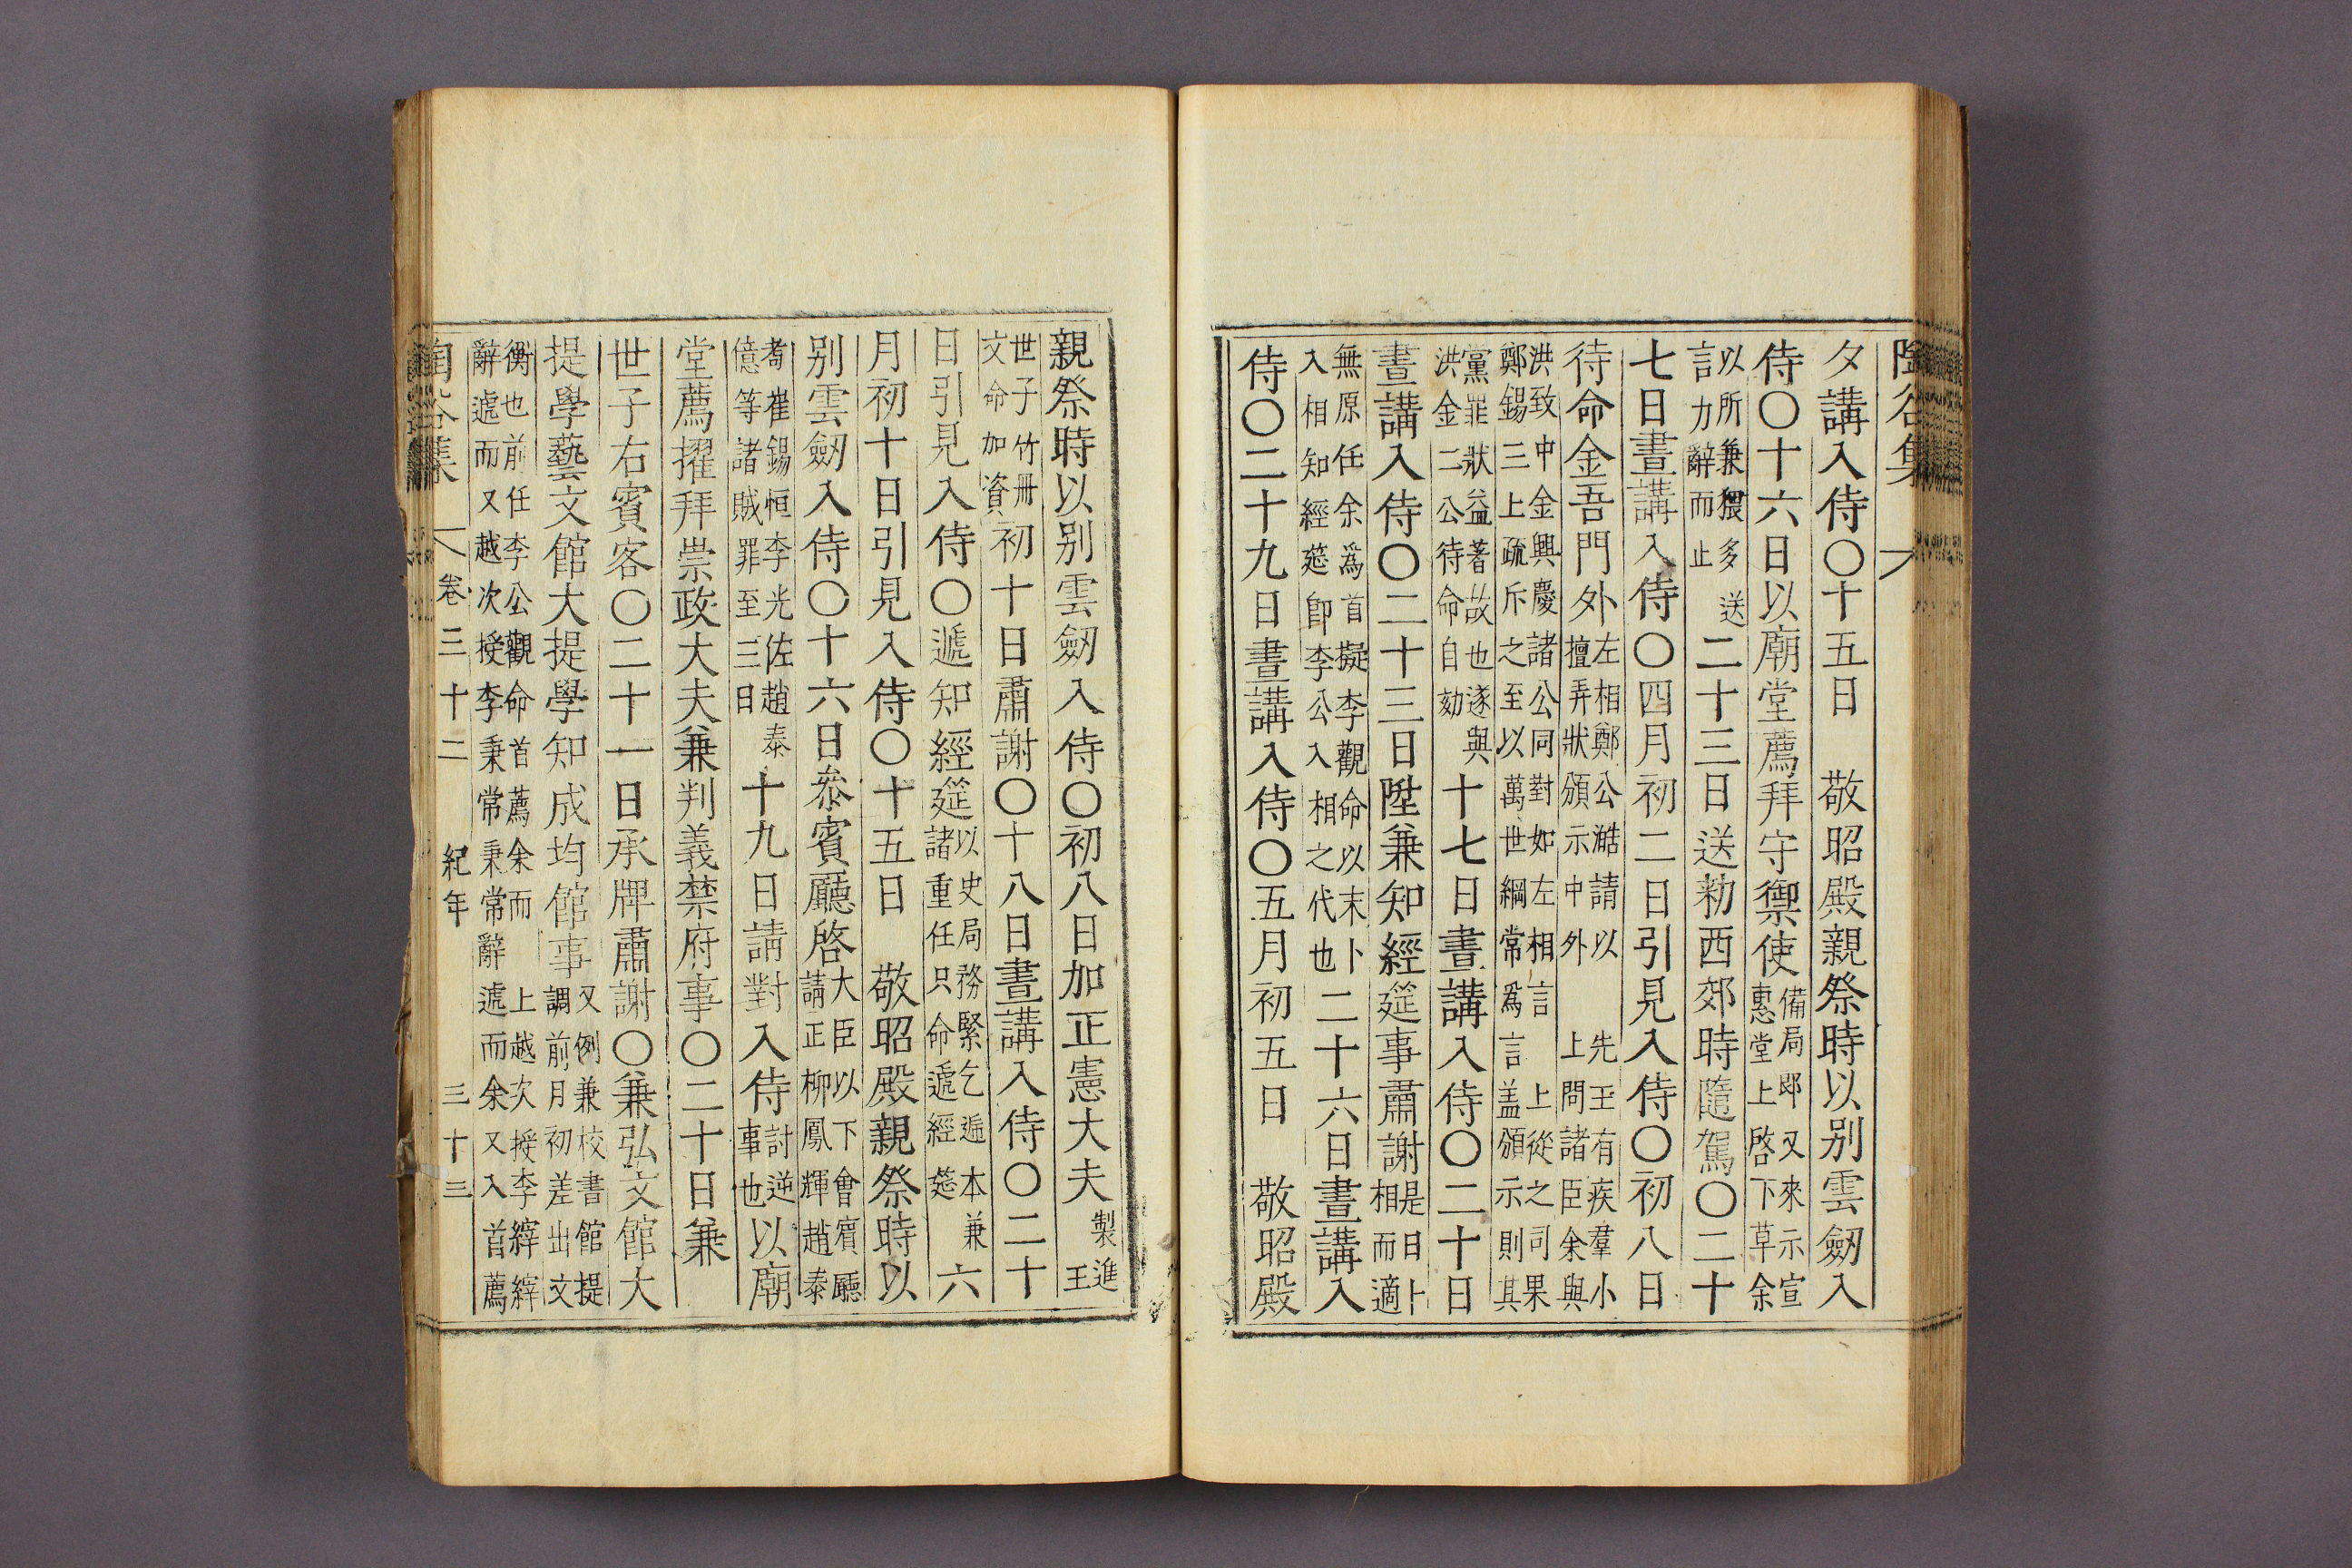 陶谷集
夕講入侍〇十五日　敬昭殿親祭時以別雲劒入
侍〇十六日以廟堂薦拜守禦使備局郞又來示宣惠堂上啓下草余
以所兼猥多送言力辭而止二十三日送勑西郊時隨駕〇二十
七日晝講入侍〇四月初二日引見入侍〇初八日
待命金吾門外左相鄭公澔請以　先王有疾羣小擅弄狀頒示中外　上問諸臣余與
洪致中金興慶諸公同對如左相言　上從之司果鄭錫三上疏斥之至以萬世綱常爲言盖頒示則其
黨罪狀益著故也遂與洪金二公待命自劾十七日晝講入侍〇二十日
晝講入侍〇二十三日陞兼知經筵事肅謝是日卜相而適
無原任余爲首擬李觀命以末卜入相知經筵卽李公入相之代也二十六日晝講入
侍〇二十九日晝講入侍〇五月初五日　敬昭殿
親祭時以別雲劒入侍〇初八日加正憲大夫製進　王
世子竹冊文命加資初十日肅謝〇十八日晝講入侍〇二十
日引見入侍〇遞知經筵以史局務緊乞遞本兼諸重任只命遞經筵六
月初十日引見入侍〇十五日　敬昭殿親祭時以
別雲劒入侍〇十六日叅賓廳啓大臣以下會賓廳請正柳鳳輝趙泰
耉崔錫恒李光佐趙泰億等諸賊罪至三日十九日請對入侍討逆事也以廟
堂薦擢拜崇政大夫兼判義禁府事〇二十日兼
世子右賓客〇二十一日承牌肅謝〇兼弘文館大
提學藝文館大提學知成均館事又例兼校書館提調前月初差出文
衡也前任李公觀命首薦余而　上越次授李縡縡辭遞而又越次授李秉常秉常辭遞而余又入首薦
陶谷集　卷三十二　紀年　三十三